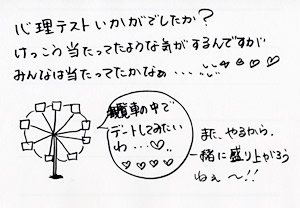 心理テストいかがでしたか?
けっこう当たってたような気がするんですが
みんなは当たってたかなぁ・・・・・♡♡♡
観覧車の中で
デートしてみたい
わ・・・♡
♡♡♡♡
また、やるから、
一緒に盛り上がろう
ねぇ〜!!